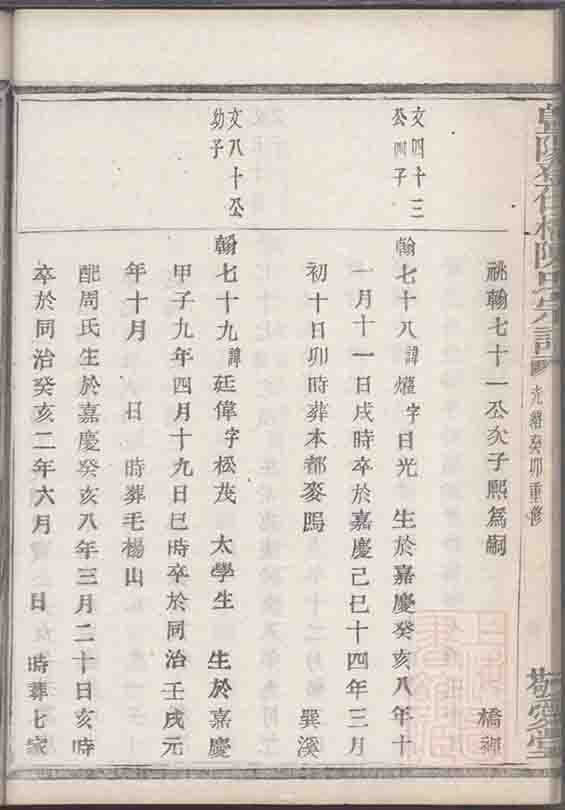 光緒癸卯重修
祧翰七十一丕次子熙爲嗣 橋
文四十三
公四子
翰七十八諱燿字日光 生於嘉慶癸亥八年十
一月十一日戌時卒於嘉慶己巳十四年三月
初十日卯時葬本都麥塢 巽溪
文八十公
幼子
翰七十九諱廷偉字松茂 太學生 生於嘉慶
甲子九年四月十九日巳時卒於同治壬戌元
年十月 日 時葬毛楊山
配周氏生於嘉慶癸亥八年三月二十日亥時
卒於同治癸亥二年六月 日 時葬七家